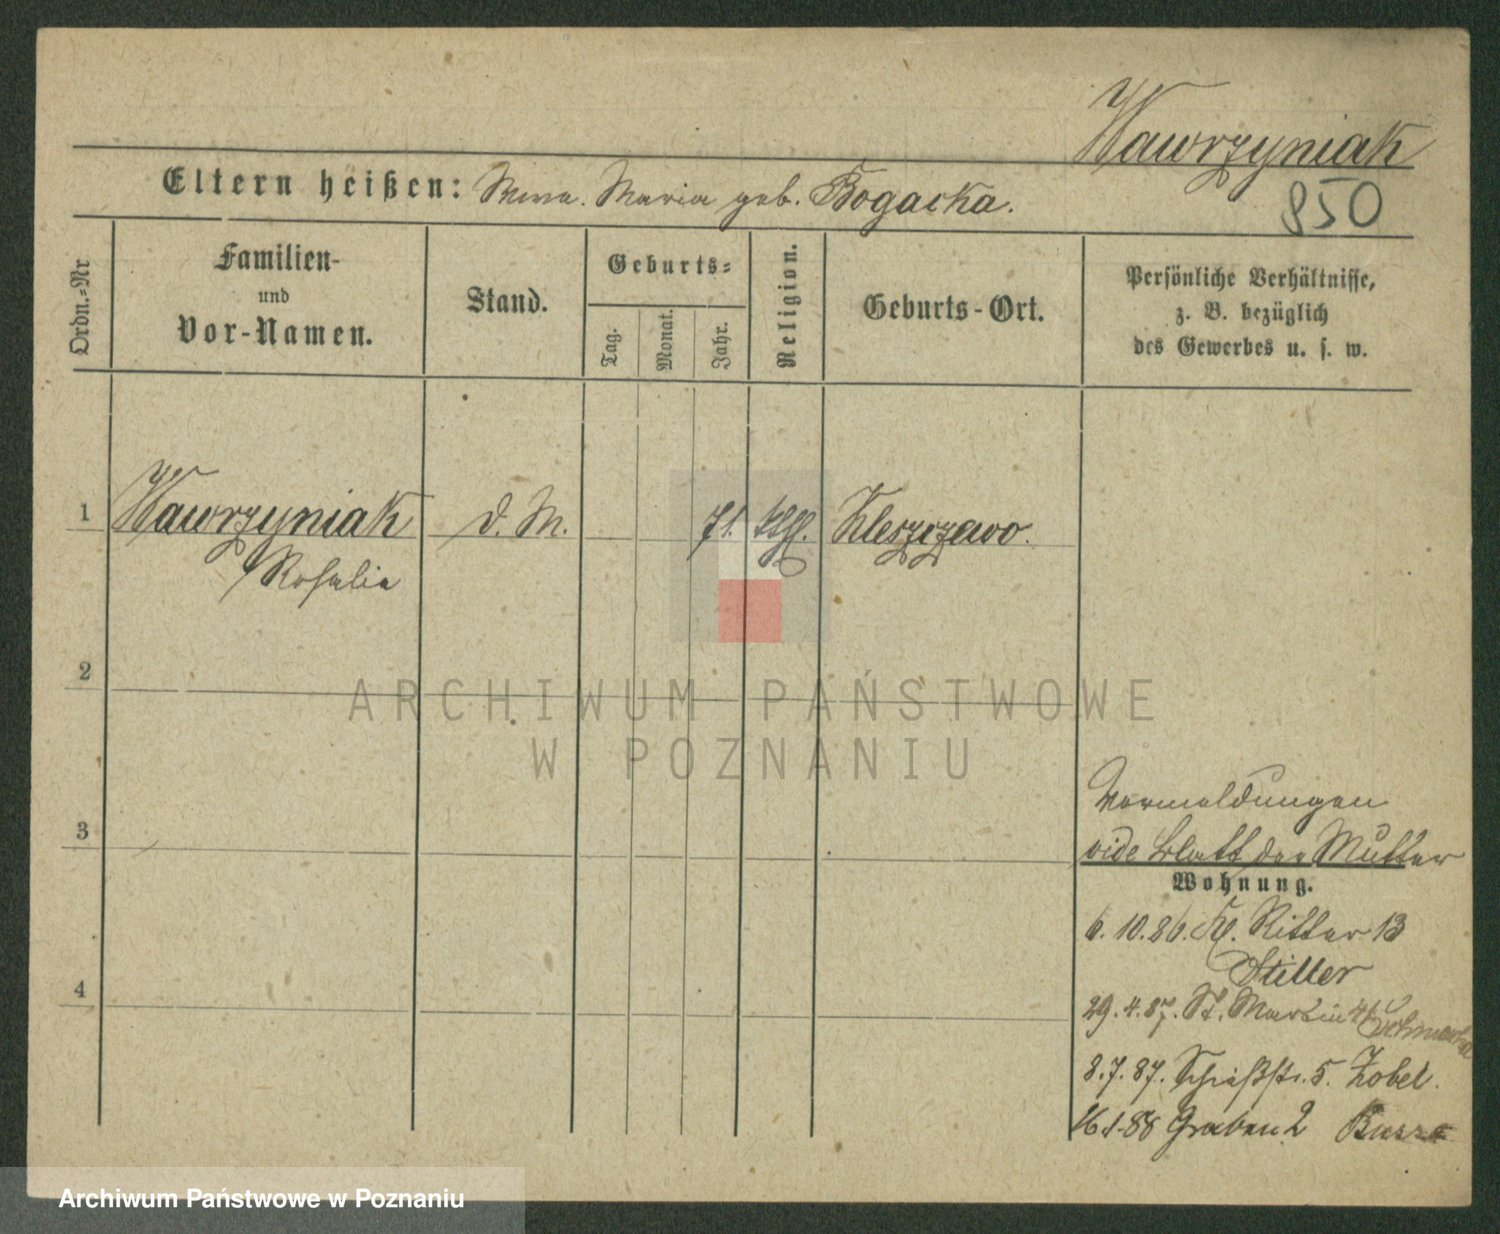 Wawrzyniak
Eltern heißen: Wwe. Maria geb. Bogacka.
850
Ordn.-Nr
Familien-
und
Vor-Namen.
Stand.
Geburts-
Tag.
Monat.
Jahr.
Religion.
Geburts-Ort.
Persönliche Verhältnisse,
z. B. bezüglich
des Gewerbes u. s. w.
1 Wawrzyniak d. M. 71. kth. Kleszczewo.
Rosalie
2
ARCHIWUM PAŃSTWOWE
W POZNANIU
3
Vermeldungen
vide Blatt der Mutter
Wohnung.
6.10.86. Kl. Ritter 13
Stiller
4
29.4.87. St. Martin
8.7.87. Schießstr. 5. Zobel.
16.1.88 Graben 2
Archiwum Państwowe w Poznaniu